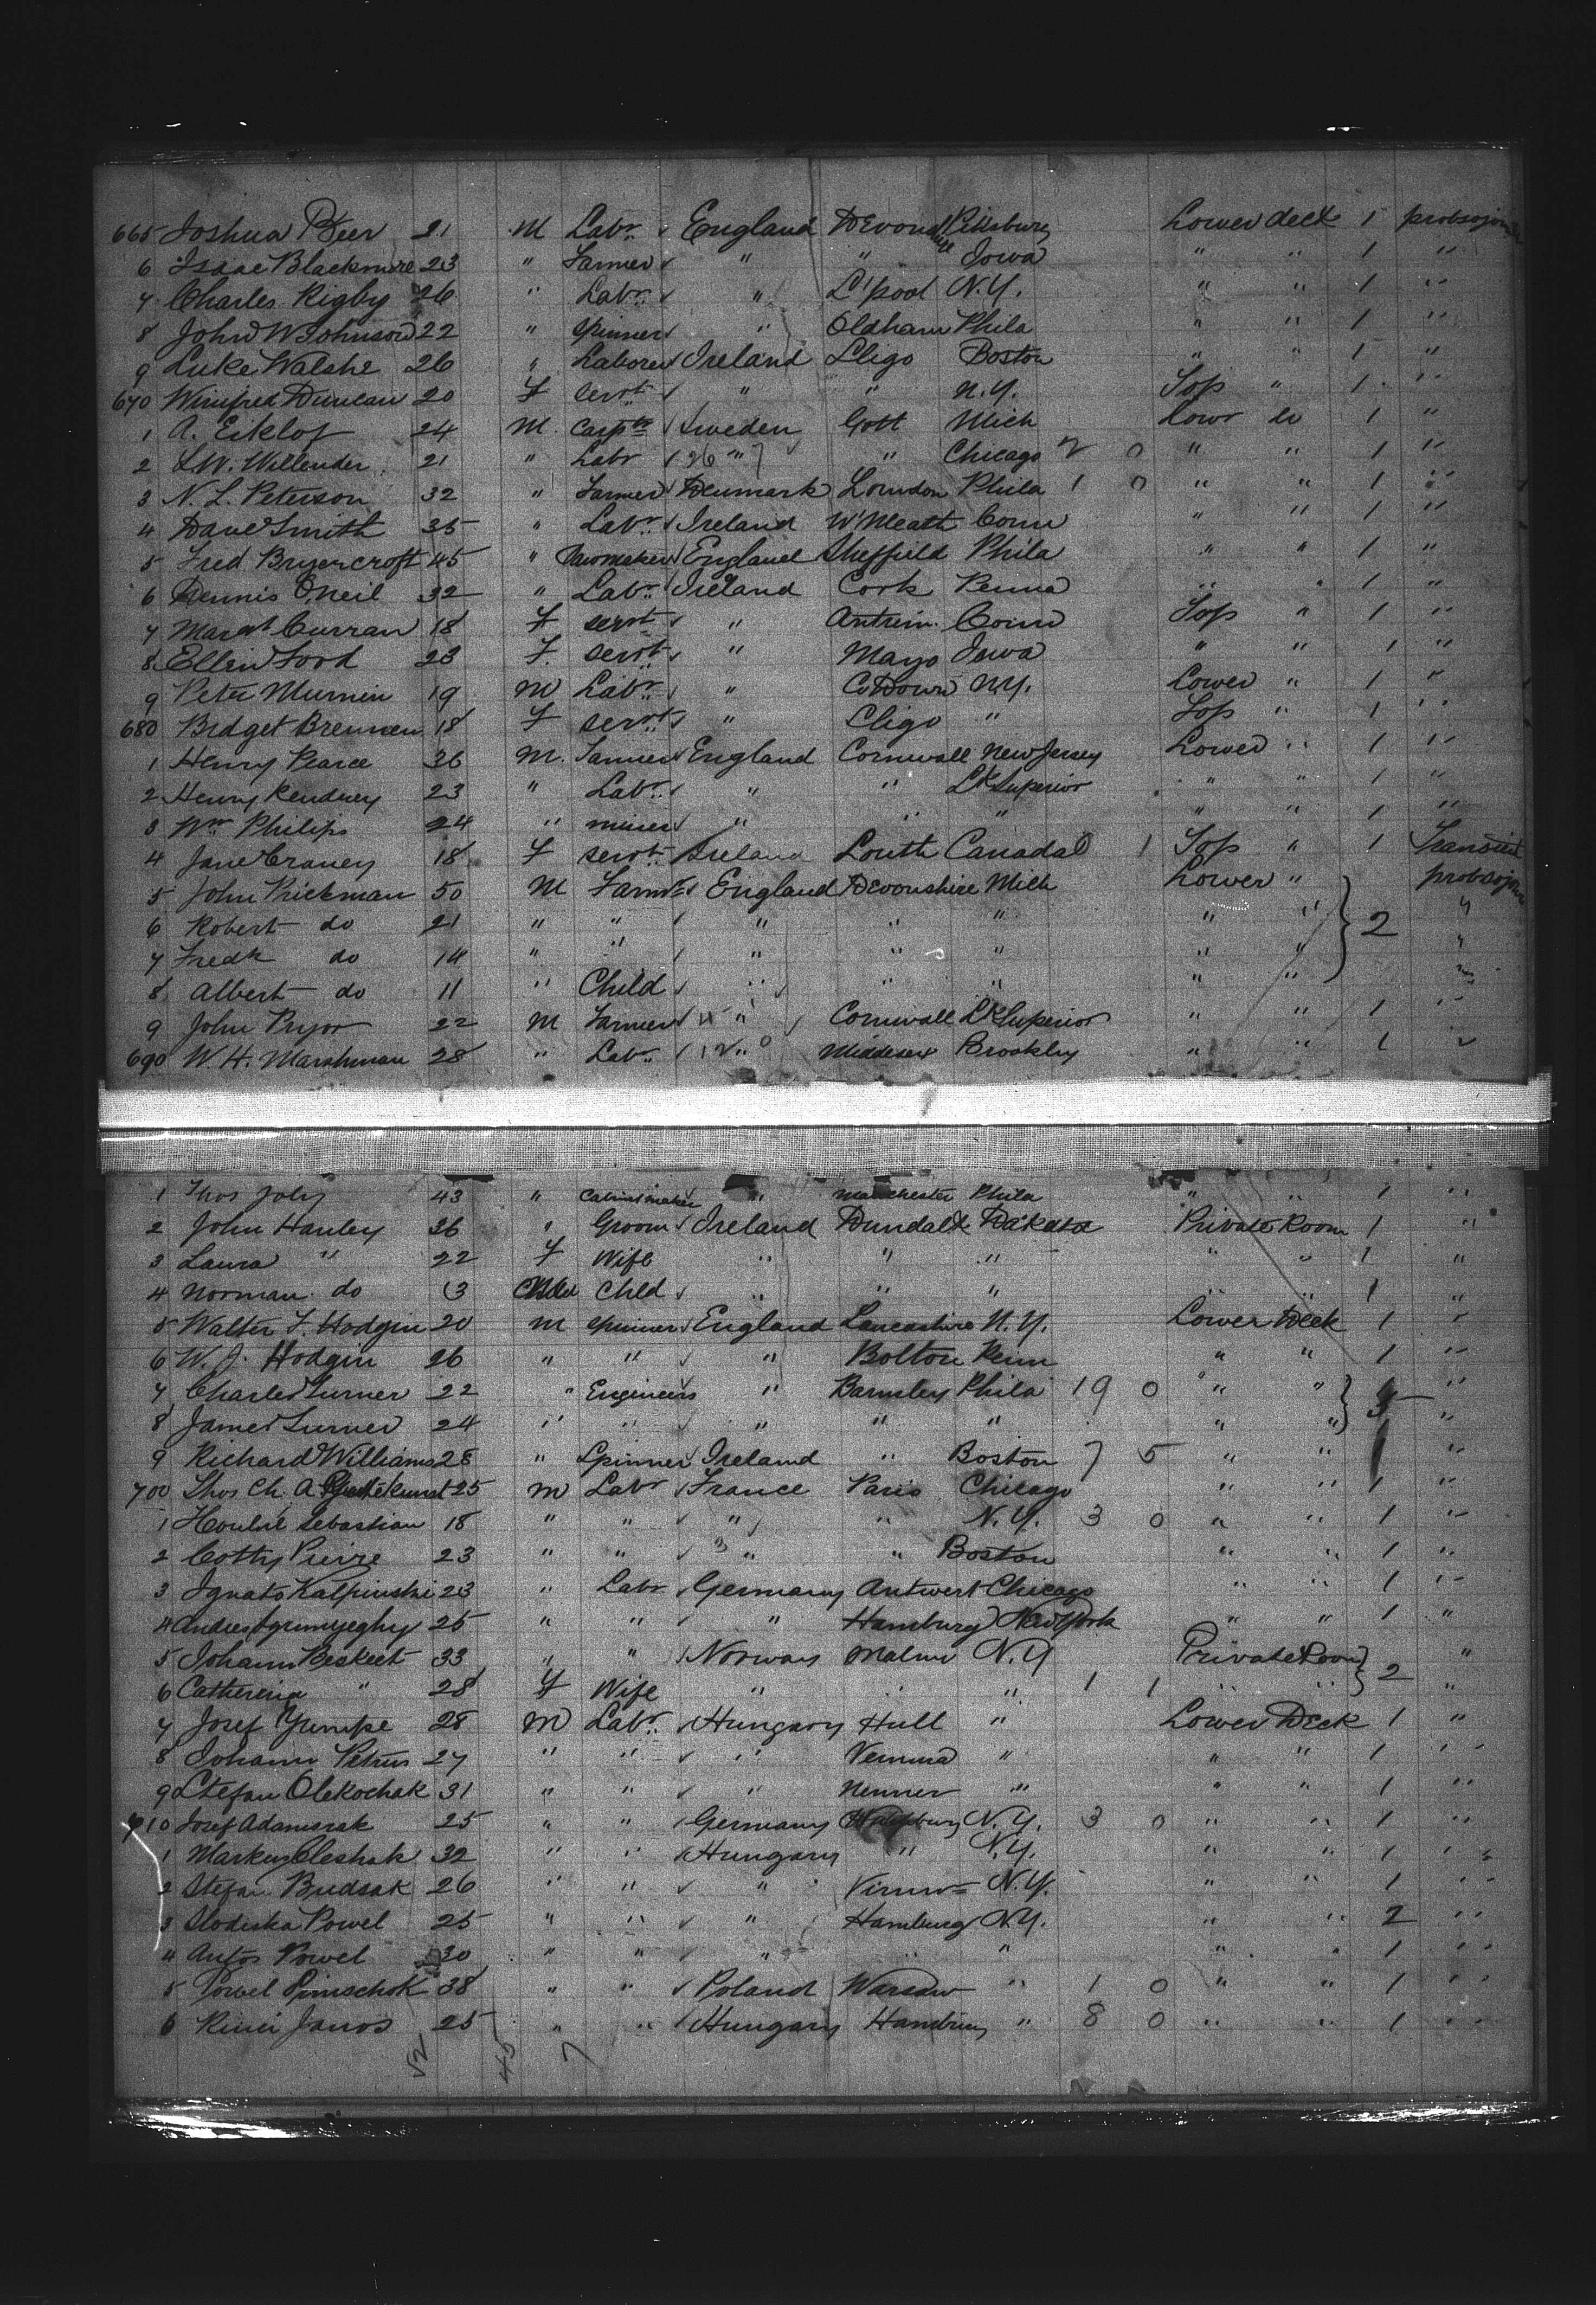 665 Joshua Beer 21 M Labr England Devonshire Pittsburg Lower deck 1 probsojourn
6 Isaac Blackmore 23 " Farmer " " Iowa " " 1 "
7 Charles Rigby 26 " Labr " L'pool N.Y. " " 1 "
8 John W Johnson 22 " Spinner " Oldham Phila " " 1 "
9 Luke Walshe 26 " Laborer Ireland Sligo Boston " " 1 "
670 Winifred Duncan 20 F Servt " " N.Y. Top " 1 "
1 A. Eklof 24 M Carptr Sweden Gott Mich Lowr do 1 "
2 L.W. Wellender 21 " Labr 26 " " Chicago 2 0 " " 1 "
3 N. L. Peterson 32 " Farmer Denmark London Phila 1 0 " " 1 "
4 Dave Smith 35 " Labr Ireland W'Meath Conn " " 1 "
5 Fred Bryercroft 45 " Sawmaker England Sheffield Phila " " 1 "
6 Dennis ONeil 32 " Labr Ireland Cork Penna " " 1 "
7 Margt Curran 18 F servt " Antrim Conn Top " 1 "
8 Ellen Ford 23 F. servt " Mayo Iowa " " 1 "
9 Peter Murnin 19 M Labr " Co Down N.Y. Lower " 1 "
680 Bridget Brennen 18 F servt " Sligo " Top " 1 "
1 Henry Pearce 36 M. Farmer England Cornwall New Jersey Lower " 1 "
2 Henry Kendrey 23 " Labr " " Lk Superior " " 1 "
3 Wm Philips 24 " miner " " " " " 1 "
4 Jane Craney 18 F servt Ireland Louth Canada 0 1 Top " 1 Transient
5 John Rickman 50 M Farmr England Devonshire Mich Lower " probsojourn
6 Robert do 21 " " " " " " " 2 "
7 Fredk do 14 " " " " " " " "
8 Albert do 11 " Child " " " " " "
9 John Pryor 22 M Farmer " Cornwall Lk Superior " " 1 "
690 W. H. Marshman 28 " Labr 12 " Middesex Brookley " " 1 "
1 Thos Joly 43 " Cabinetmaker " Manchester Phila " " 1 "
2 John Hanley 36 " Groom Ireland Dundalk Dakota Private Room 1 "
3 Laura " 22 F Wife " " " " " 1 "
4 Norman do 3 Child Chld " " " " " 1 "
5 Walter F. Hodgin 20 M Spinner England Lancashire N.Y. Lower Deck 1 "
6 W. J. Hodgin 26 " " " Bolton Penn " " 1 "
7 Charles Turner 22 " Engineers " Barnsley Phila 19 0 " " "
8 James Turner 24 " " " " " " " "
9 Richard Williams 28 " Spinner Ireland " Boston 7 5 " " 1 "
700 Thos Ch. A 25 M Labr France Paris Chicago " " 1 "
1 Sebastian 18 " " " " N.Y. 3 0 " " 1 "
2 Cotty Pierre 23 " " " " Boston " " 1 "
3 Ignats Kalpinski 23 " Labr Germany Antwert Chicago " " 1 "
4 25 " " " Hamburg New York " " 1 "
5 Johann Beskeet 33 " " Norway Malmo N.Y Private Room 2 "
6 Catherina " 28 F Wife " " " 1 1 " " "
7 Josef 28 M Labr Hungary Hull " Lower Deck 1 "
8 Johann Petrus 27 " " " " " " 1 "
9 Stefan Olekochak 31 " " " " " " 1 "
710 Josef Adamsrak 25 " " Germany N.Y. 3 0 " " 1 "
1 Markus Oleshak 32 " " Hungary " N.Y. " " 1 "
2 Stefan Budsak 26 " " " N.Y. " " 1 "
3 Slodiska Powel 25 " " " Hamburg N.Y. " " 2 "
4 Antos Powel 30 " " " " " " " 1 "
5 Powel Pimschok 38 " " Poland Warsaw " 1 0 " " 1 "
6 Janos 25 " " Hungary Hamburg " 8 0 " " 1 "
52 45 7